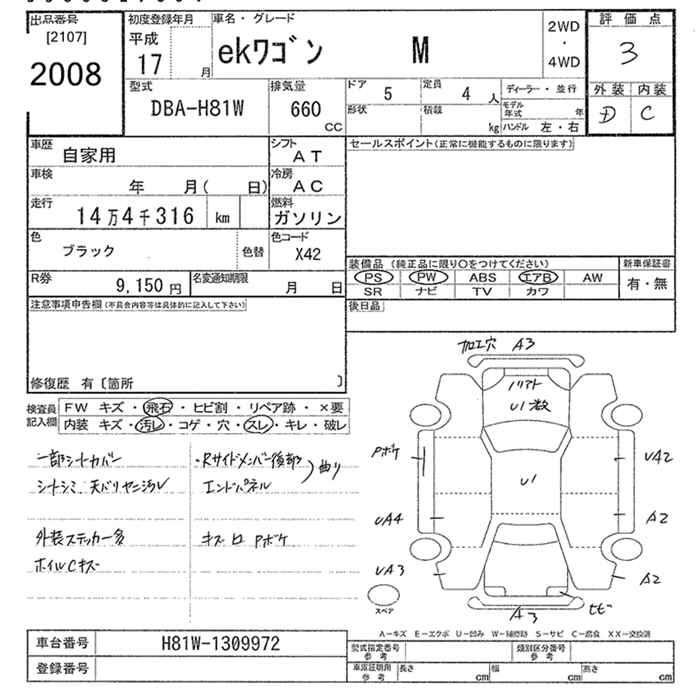 出品番号 初度登録年月 車名・グレード 2WD 評価点
[2107] 平成 ekワゴン M ・ 3
2008 17 月 4WD
外装 内装
型式 排気量 ドア 5 定員 4 人 ディーラー・並行
D C
DBA-H81W 660 CC 形状 積載 kg モデル年式 年
ハンドル 左・右
車歴 自家用 シフト AT セールスポイント(正常に機能するものに限ります)
車検 年 月( 日) 冷房 AC
走行 14万4千316 km 燃料 ガソリン
色 ブラック 色替 色コード X42
装備品 (純正品に限り○をつけてください) 新車保証書
R券 9,150円 名変通知期限 月 日
PS PW ABS エアB AW 有・無
SR ナビ TV カワ
注意事項申告欄(不具合内容等は具体的に記入して下さい)
後日品
修復歴 有〔箇所 〕
検査員記入欄 FW キズ・飛石・ヒビ割・リペア跡・×要
内装 キズ・汚レ・コゲ・穴・スレ・キレ・破レ
一部シートカバー
シートシミ、天バリヤニ汚レ
外装ステッカー多
ホイルCキズ
・Rサイドメンバー後部
エンドパネル
曲り
キズ凹Pボケ
加工穴 A3
U1数
Pボケ
UA2
U1
UA4
A2
UA3
A2
スペア
A3
ヒビ
A－キズ E－エクボ U－凹み W－補修跡 S－サビ C－腐食 XX－交換済
車台番号 H81W-1309972
型式指定番号 参考 類別区分番号 参考
登録番号
車庫証明用 参考 長さ cm 幅 cm 高さ cm